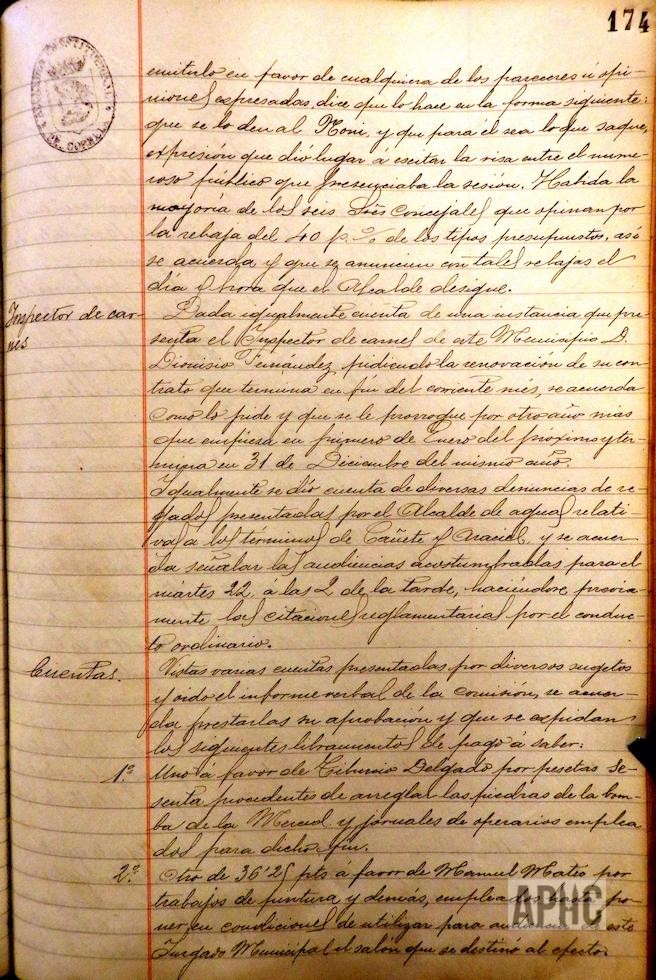 174
emitirlo en favor de cualquiera de los pareceres ú opi-
niones expresadas, dice que lo hace en la forma siguiente:
que se lo den al Roni, y que para él sea lo que saque,
expresión que dió lugar á escitar la risa entre el nume-
roso público que presenciaba la sesión. Habida la
mayoría de los seis Sres Concejales que opinan por
la rebaja del 40 p.% de los tipos presupuestos, así
se acuerda y que se anuncien con tales rebajas el
día y hora que el Alcalde designe.
Inspector de car-
nes
Dada igualmente cuenta de una instancia que pre-
senta el Inspector de carnes de este Municipio D.
Dionisio Fernández, pidiendo la renovación de su con-
trato que termina en fin del corriente mes, se acuerda
como lo pide y que se le prorrogue por otro año mas
que empieza en primero de Enero del próximo y ter-
mina en 31 de Diciembre del mismo año.
Igualmente se dió cuenta de diversas denuncias de re-
gados presentadas por el Alcalde de aguas relati-
vas a los terminos de Cañete y Araciel, y se acuer-
da señalar las audiencias acostumbrables para el
martes 22, á las 2 de la tarde, haciéndose previa-
mente las citaciones reglamentarias por el conduc-
to ordinario.
Cuentas.
Vistas varias cuentas presentadas por diversos sugetos
y oido el informe verbal de la comisión, se acuer-
da prestarlas su aprobación y que se expidan
los siguientes libramientos de pago á saber:
1º Uno á favor de Tiburcio Delgado por pesetas se-
senta procedentes de arreglar las piedras de la bom-
ba de la Merced y jornales de operarios emplea
dos para dicho fin.
2º Otro de 36'25 pts á favor de Manuel Mateo por
trabajos de pintura y demás, empleados hasta po-
ner en condiciones de utilizar para audiencia este
Juzgado Municipal el salón que se destinó al efecto.
APHC